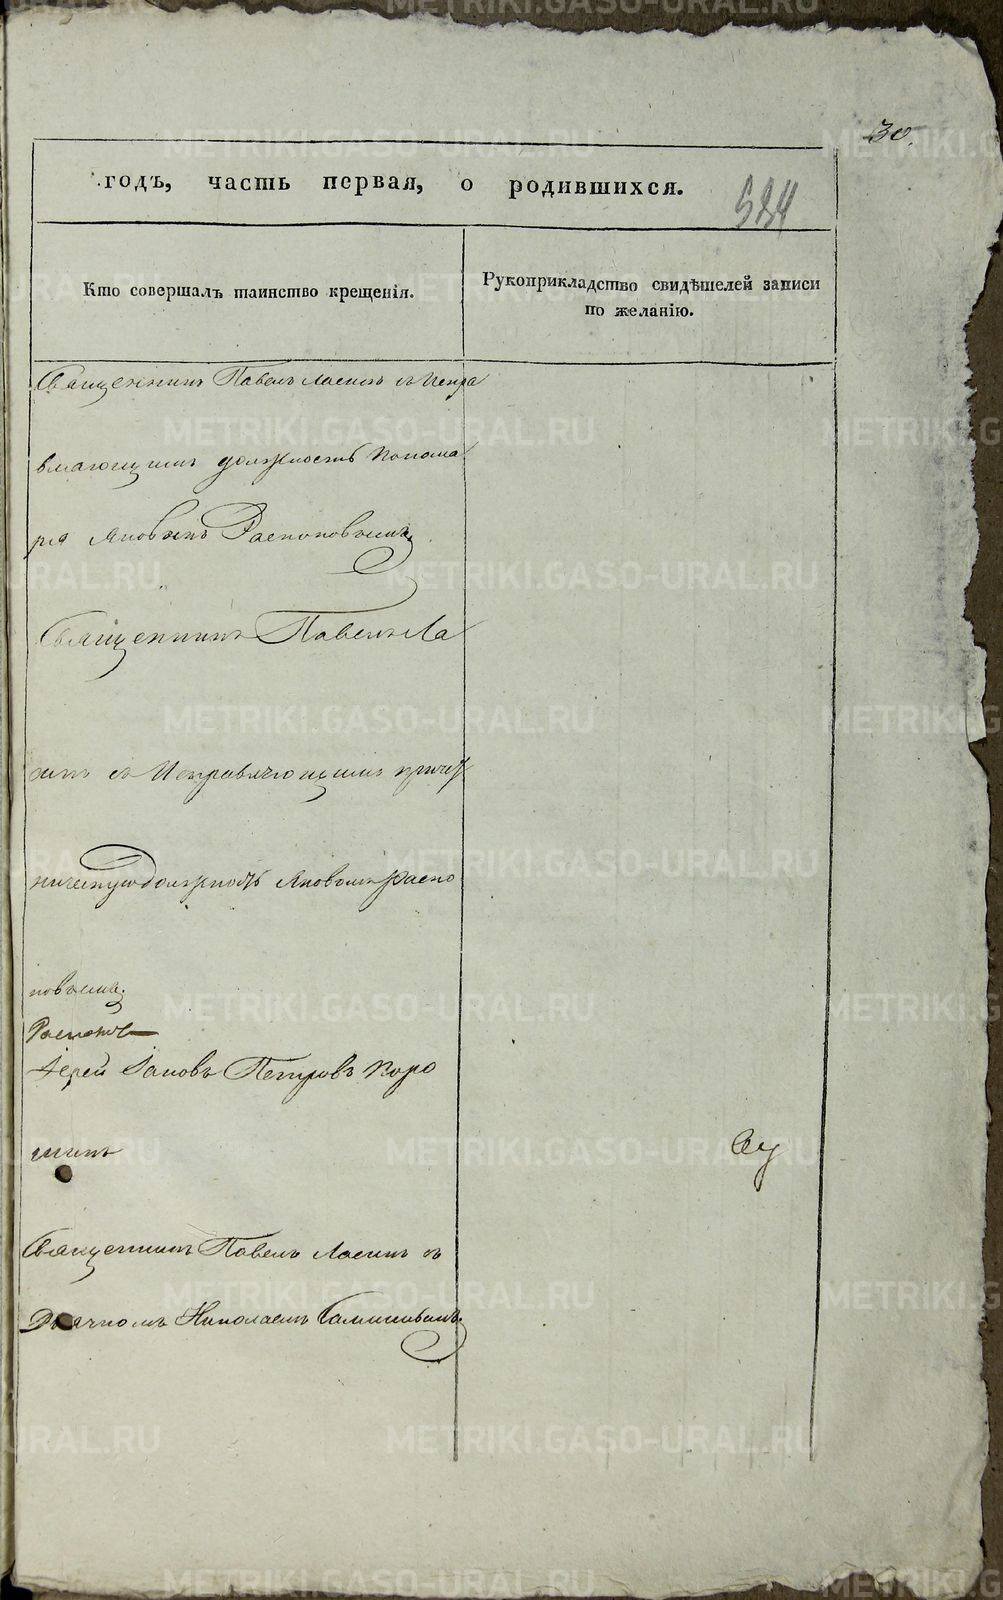 30.
годъ, часть первая, о родившихся.
584
Кто совершалъ таинство крещенія.
Рукоприкладство свидѣтелей записи
по желанію.
Священникъ Павелъ съ Испра
вляющимъ должность понома
ря Яковомъ Распоповымъ.
Священникъ Павелъ Ла
съ Исправляющимъ причет
ническую должность Яковомъ Распо
повымъ.
Іерей Іаковъ Петровъ Коро
Священникъ Павелъ съ
Дьячкомъ Николаемъ
METRIKI.GASO-URAL.RU